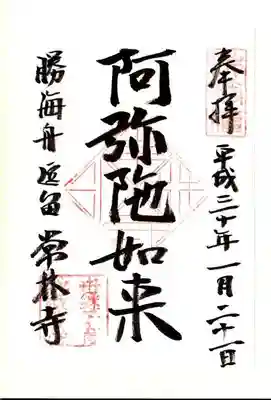 奉拝
平成三十年一月二十一日
阿弥陀如来
勝海舟逗留 常林寺